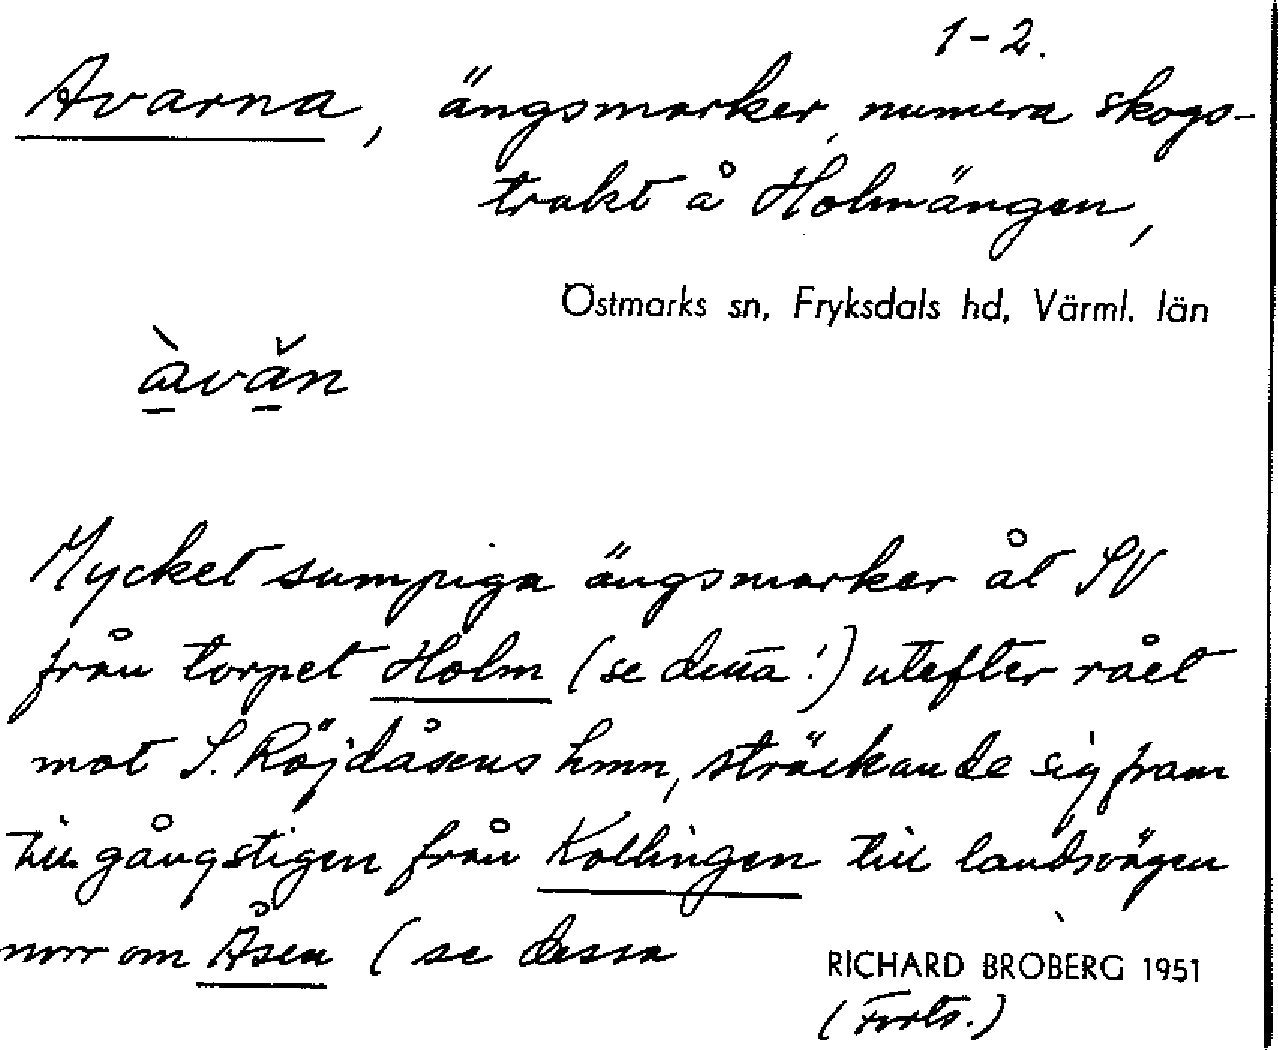 1-2.
Avarna, ängsmarker, numera skogs-
trakt å Holmängen,
Östmarks sn, Fryksdals hd, Värml. län
àvǎn
Mycket sumpiga ängsmarker åt SV
från torpet Holm (se detta!) utefter rået
mot S. Röjdåsens hmn, sträckande sig fram
till gångstigen från Kollingen till landsvägen
norr om Åsen (se dessa
RICHARD BROBERG 1951
(Forts.)